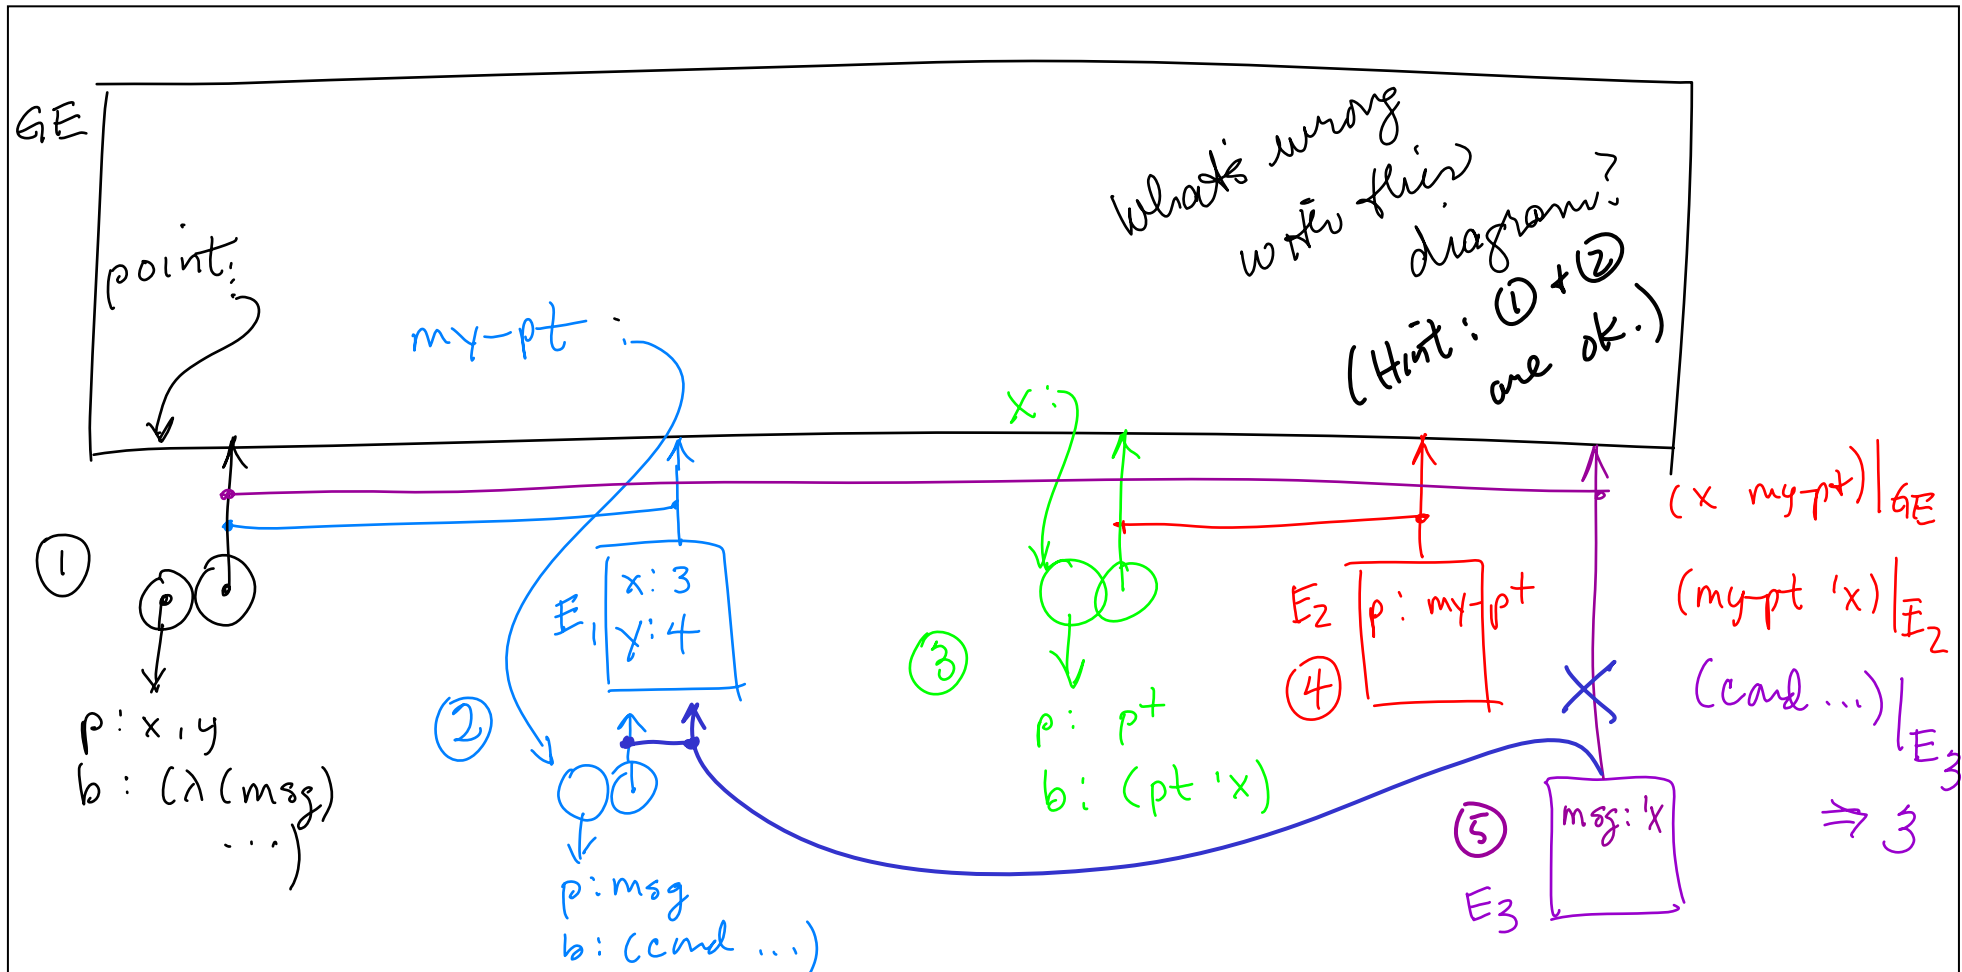 GE
What's wrong
with this
diagram?
(Hint: ① + ②
are ok.)
point:
my-pt :
x:
①
p: x, y
b: (λ(msg)
...)
②
E1
x: 3
y: 4
p: msg
b: (cond ...)
③
p: pt
b: (pt 'x)
E2
p: my-pt
④
⑤
msg: 'x
E3
(x my-pt)|GE
(my-pt 'x)|E2
(cond ...)|E3
⇒ 3